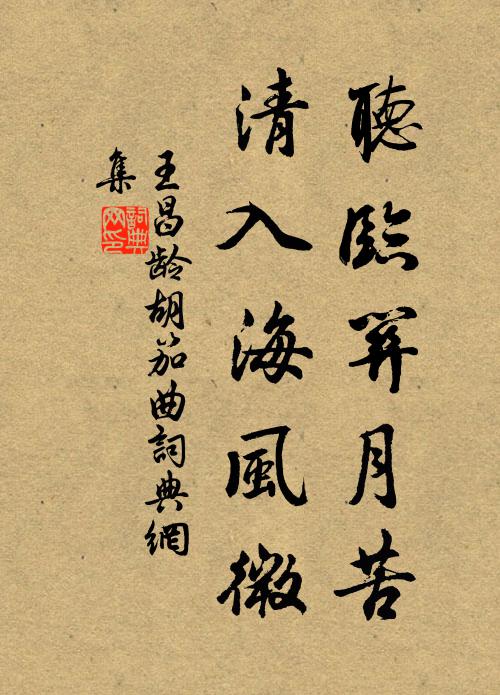 聽臨關月苦
清入海風微
王昌龄胡笳曲詞典網
集
詞典
网印